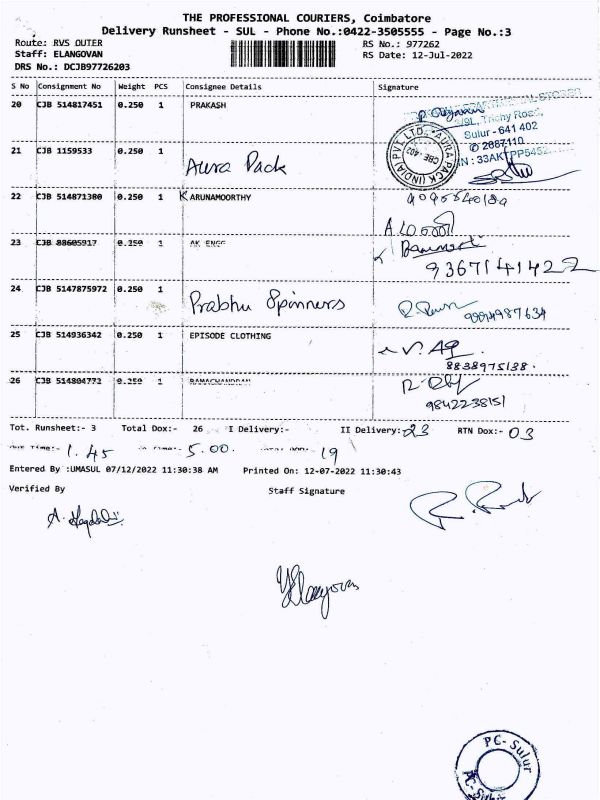 THE PROFESSIONAL COURIERS, Coimbatore
Delivery Runsheet - SUL - Phone No.:0422-3505555 - Page No.:3
Route: RVS OUTER RS No.: 977262
Staff: ELANGOVAN RS Date: 12-Jul-2022
DRS No.: DCJB97726203
S No Consignment No Weight PCS Consignee Details Signature
20 CJB 514817451 0.250 1 PRAKASH
Trichy Road,
Sulur - 641 402
2687110
21 CJB 1159533 0.250 1 Aura Pack
AURA PACK (INDIA) PVT. LTD. CBE - 402
22 CJB 514871380 0.250 1 K ARUNAMOORTHY
23 CJB 88605917 0.250 1 AK ENGG
9367141422
24 CJB 5147875972 0.250 1 Prabhu Spinners
9994987634
25 CJB 514936342 0.250 1 EPISODE CLOTHING
8838975138.
26 CJB 514804772 0.250 1 RAMACHANDRAN
9842238151
Tot. Runsheet:- 3 Total Dox:- 26 I Delivery:- II Delivery:- 23 RTN Dox:- 03
1.45 5.00. 19
Entered By :UMASUL 07/12/2022 11:30:38 AM Printed On: 12-07-2022 11:30:43
Verified By Staff Signature
PC- Sulur